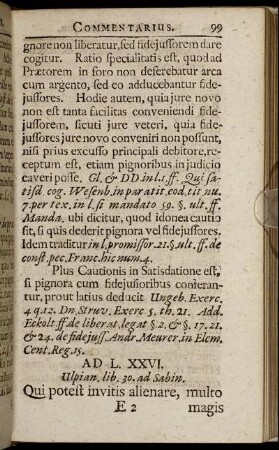 COMMENTARIUS. 99
gnore non liberatur, sed fidejussorem dare
cogitur. Ratio specialitatis est, quod ad
Prætorem in foro non deferebatur arca
cum argento, sed eo adducebantur fide-
jussores. Hodie autem, quia jure novo
non est tanta facilitas conveniendi fide-
jussorem, sicuti jure veteri, quia fide-
jussores jure novo conveniri non possunt,
nisi prius excusso principali debitore, re-
ceptum est, etiam pignoribus in judicio
caveri posse. Gl. & DD in l. 1. ff. Qui sa-
tisd. cog. Wesenb. in paratit. eod. tit. nu.
7. per tex. in l. si mandato 59. §. ult. ff.
Manda. ubi dicitur, quod idonea cautio
sit, si quis dederit pignora vel fidejussores.
Idem traditur in l. promissor. 21. §. ult. ff. de
const. pec. Franc. hic num. 4.
Plus Cautionis in Satisdatione est,
si pignora cum fidejussionibus conferan-
tur, prout latius deducit Ungeb. Exerc.
4 q. 12. Dn. Struv. Exerc. 5. th. 21. Add.
Eckolt ff. de liberat. legat §. 2. & §. 17. 21.
& 24. de fidejuss. Andr. Meurer. in Elem.
Cent. Reg. 15.
AD L. XXVI.
Ulpian. lib. 30. ad Sabin.
Qui potest invitis alienare, multo
E 2 magis